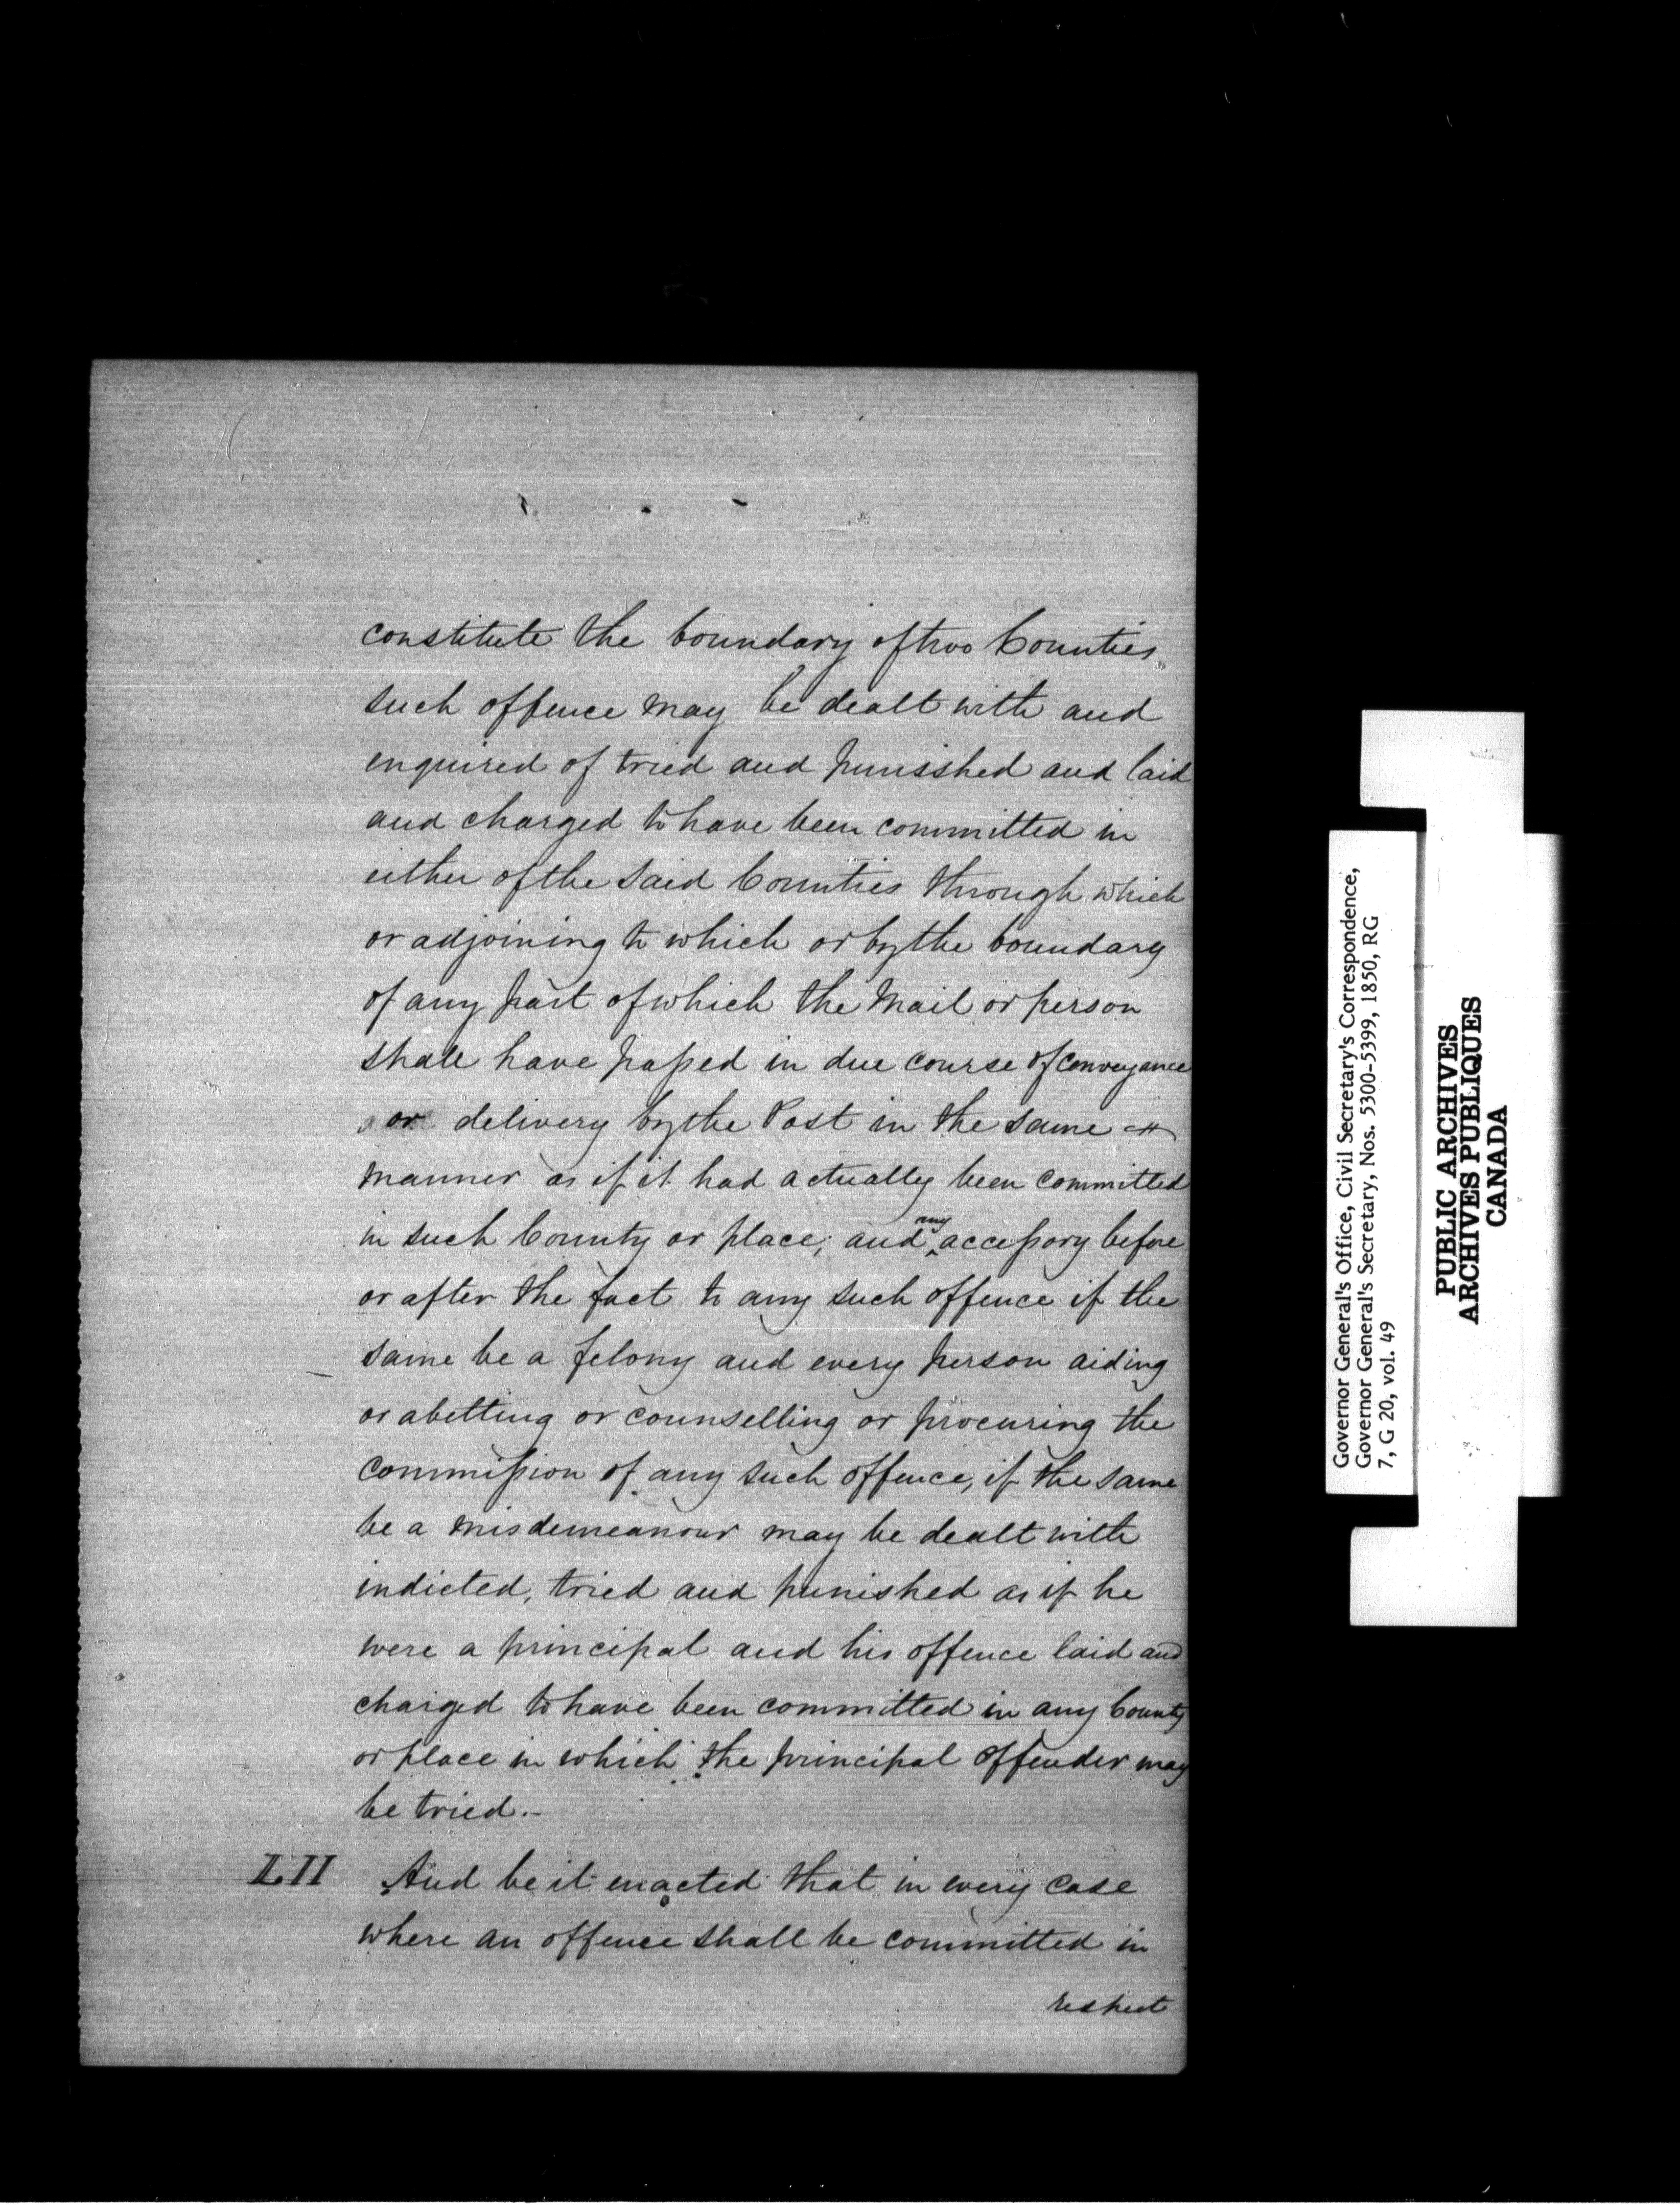 constitute the boundary of two Counties
such offence may be dealt with and
enquired of tried and punisshed and laid
and charged to have been committed in
either of the said Counties through which
or adjoining to which or by the boundary
of any part of which the Mail or person
shall have passed in due course of conveyance
or delivery by the Post in the same
manner as if it had actually been committed
in such County or place; and any accessory before
or after the fact to any such offence if the
same be a felony and every person aiding
or abetting or counselling or procuring the
commission of any such offence, if the same
be a misdemeanour may be dealt with
indicted, tried and punished as if he
were a principal and his offence laid and
charged to have been committed in any County
or place in which the principal offender may
be tried.-
LII And be it enacted that in every case
where an offence shall be committed in
respect
Governor General's Office, Civil Secretary's Correspondence,
Governor General's Secretary, Nos. 5300-5399, 1850, RG
7, G 20, vol. 49
PUBLIC ARCHIVES
ARCHIVES PUBLIQUES
CANADA